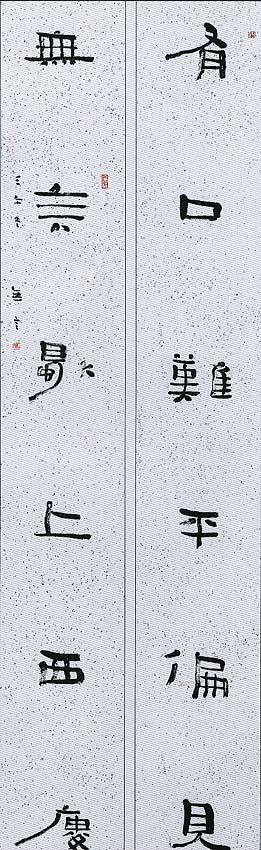 有口難平偏見
無言獨上西廔